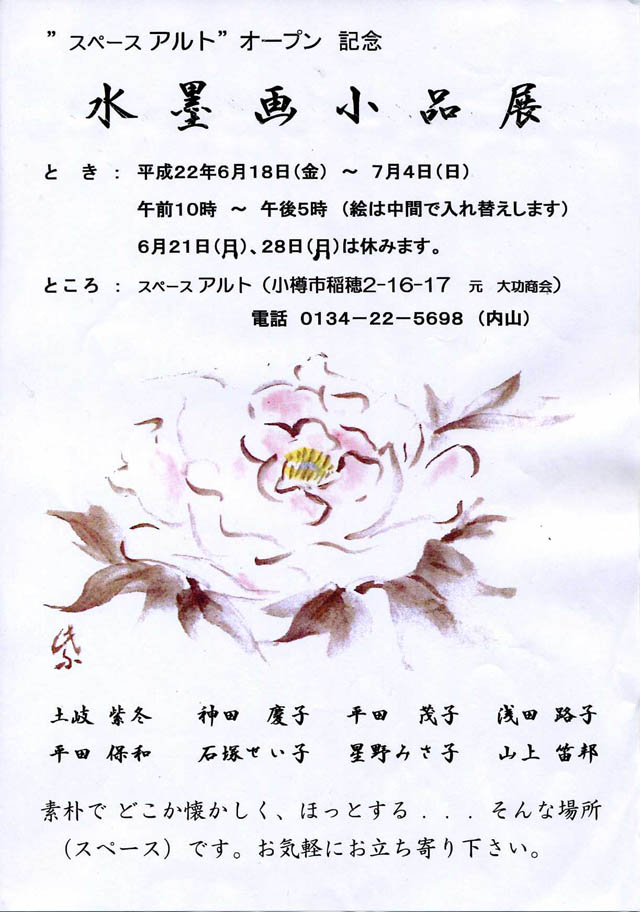 ”スペース アルト”オープン 記念
水墨画小品展
と き : 平成22年6月18日(金) ～ 7月4日(日)
午前10時 ～ 午後5時 (絵は中間で入れ替えします)
6月21日(月)、28日(月)は休みます。
ところ : スペース アルト (小樽市稲穂2-16-17 元 大功商会)
電話 0134－22－5698 (内山)
紫
土岐 紫冬 神田 慶子 平田 茂子 浅田 路子
平田 保和 石塚せい子 星野みさ子 山上 笛邦
素朴で どこか懐かしく、ほっとする . . . そんな場所
(スペース) です。お気軽にお立ち寄り下さい。